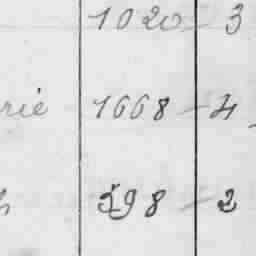 1020 - 3
rié 1668 - 4
598 - 2